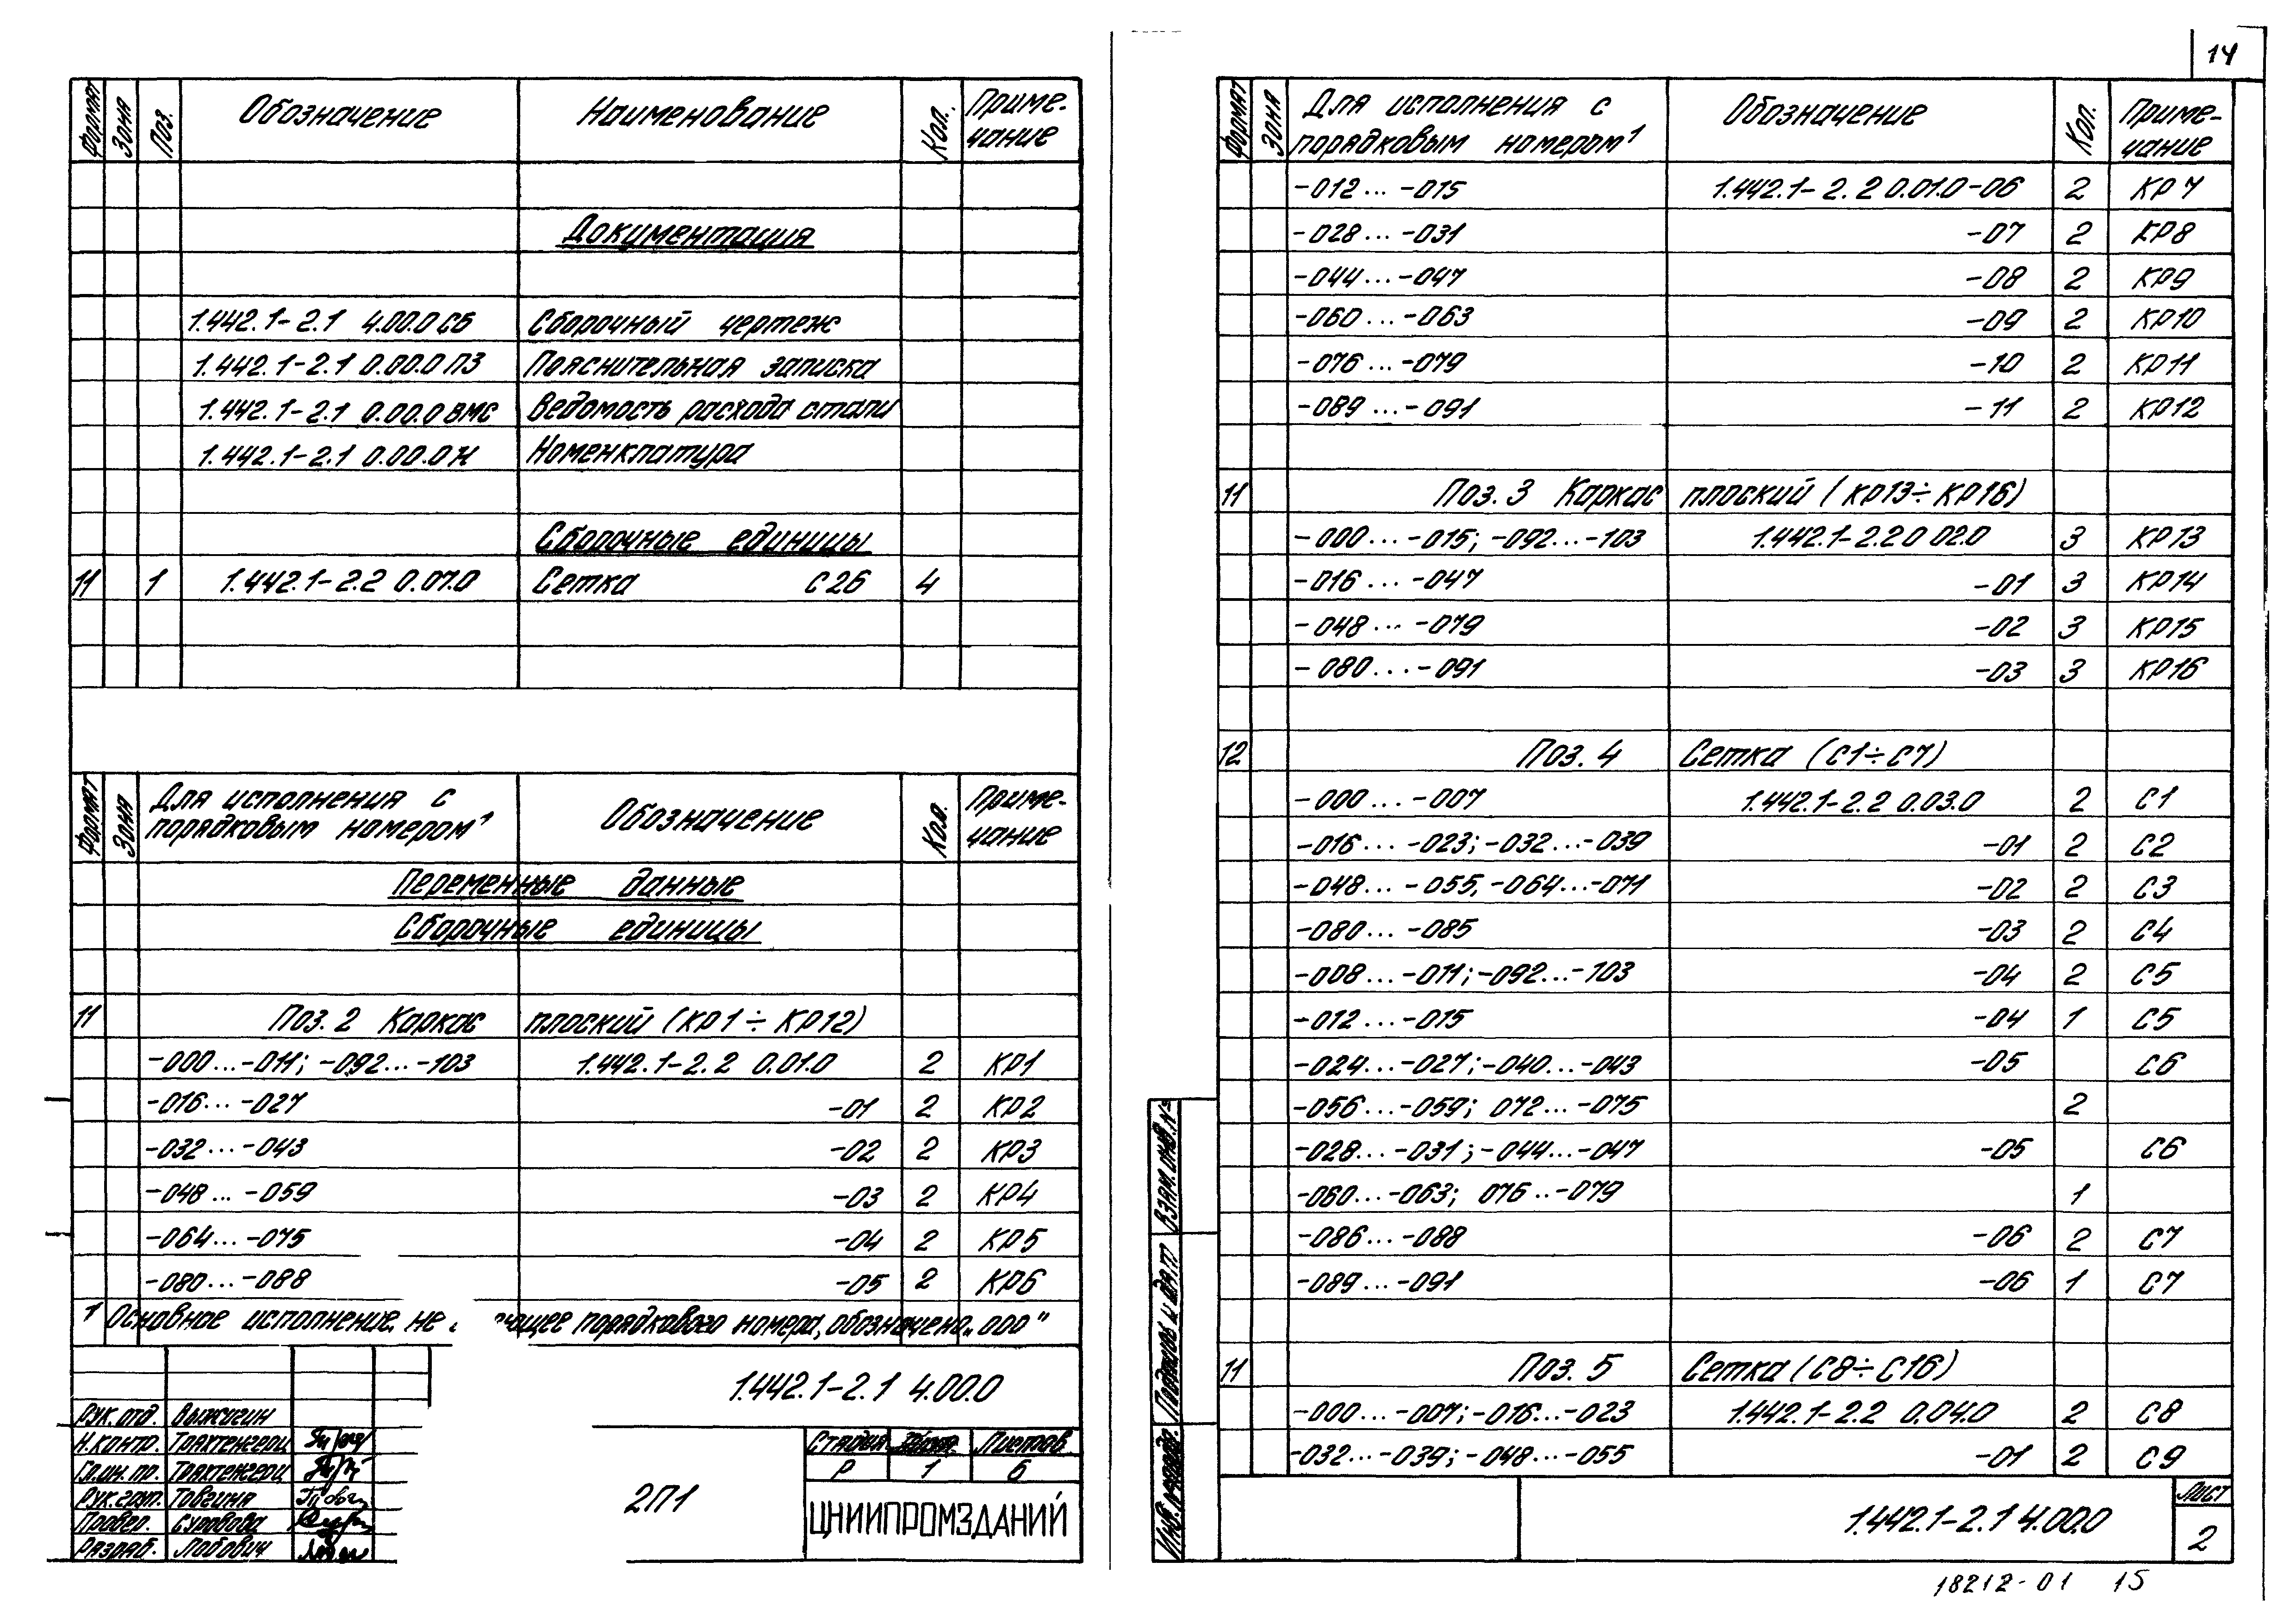 Формат Зона Поз. Обозначение Наименование Кол. Приме-
чание
Документация
1.442.1-2.1 4.00.0 СБ Сборочный чертеж
1.442.1-2.1 0.00.0 ПЗ Пояснительная записка
1.442.1-2.1 0.00.0 ВМС Ведомость расхода стали
1.442.1-2.1 0.00.0 Н Номенклатура
Сборочные единицы
11 1 1.442.1-2.2 0.07.0 Сетка С26 4
Формат Зона Для исполнения с порядковым номером¹ Обозначение Кол. Приме-
чание
Переменные данные
Сборочные единицы
11 Поз. 2 Каркас плоский (КР1÷КР12)
-000...-011; -092...-103 1.442.1-2.2 0.01.0 2 КР1
-016...-027 -01 2 КР2
-032...-043 -02 2 КР3
-048...-059 -03 2 КР4
-064...-075 -04 2 КР5
-080...-088 -05 2 КР6
1 Основное исполнение, не ющее порядкового номера, обозначено „000"
1.442.1-2.1 4.00.0
Рук. отд. Выжигин
Н.контр. Трахтенгерц
Гл.ин.пр. Трахтенгерц
Рук.груп. Товгиня
Провер. Суровова
Разраб. Лобович
2П1
Стадия Лист Листов
Р 1 6
ЦНИИПРОМЗДАНИЙ
14
Формат Зона Для исполнения с порядковым номером¹ Обозначение Кол. Приме-
чание
-012...-015 1.442.1-2.2 0.01.0-06 2 КР7
-028...-031 -07 2 КР8
-044...-047 -08 2 КР9
-060...-063 -09 2 КР10
-076...-079 -10 2 КР11
-089...-091 -11 2 КР12
11 Поз. 3 Каркас плоский (КР13÷КР16)
-000...-015; -092...-103 1.442.1-2.2 0 02.0 3 КР13
-016...-047 -01 3 КР14
-048...-079 -02 3 КР15
-080...-091 -03 3 КР16
12 Поз. 4 Сетка (С1÷С7)
-000...-007 1.442.1-2.2 0.03.0 2 С1
-016...-023; -032...-039 -01 2 С2
-048...-055, -064...-071 -02 2 С3
-080...-085 -03 2 С4
-008...-011; -092...-103 -04 2 С5
-012...-015 -04 1 С5
-024...-027; -040...-043 -05 С6
-056...-059; 072...-075 2
-028...-031; -044...-047 -05 С6
-060...-063; 076..-079 1
-086...-088 -06 2 С7
-089...-091 -06 1 С7
11 Поз. 5 Сетка (С8÷С16)
-000...-007; -016...-023 1.442.1-2.2 0.04.0 2 С8
-032...-039; -048...-055 -01 2 С9
Взам. инв. №
Подпись и дата
Инв. № подл.
1.442.1-2.1 4.00.0
Лист
2
18212-01 15